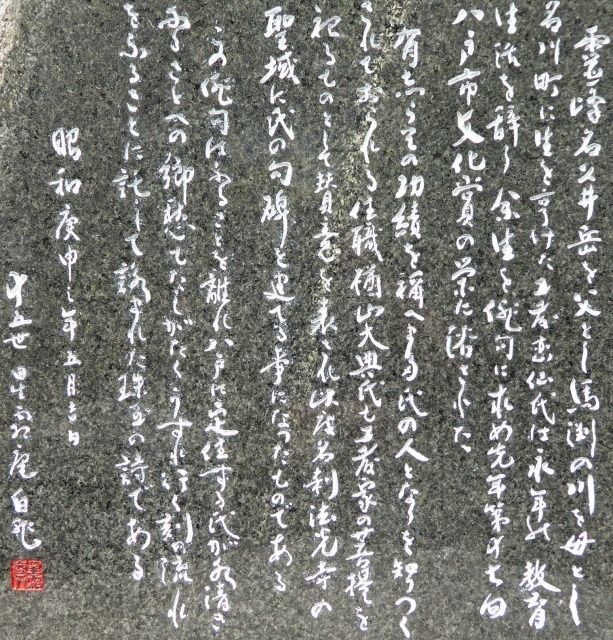 霊峰名久井岳を父とし馬淵の川を母とし
名川町に生を享けた工藤 仙氏は永年の教育
生活を辞し余生を俳句に求め先年第 七回
八戸市文化賞の栄に浴された
有志 その功績を称へ 氏の人となりを知りつく
されておられる住職楠山大典氏も工藤家の菩提を
祀るものとして賛意を表され此 名刹法光寺の
聖域に氏の句碑を建てる事になったものである
この俳句は ふるさとを離れ八戸に定住する氏が水清き
ふるさとへの郷愁 たちがたく 行く刻の流れ
を ることに託して詠まれた珠玉の詩である
昭和庚申之年五月吉日
十五世 星 尾白